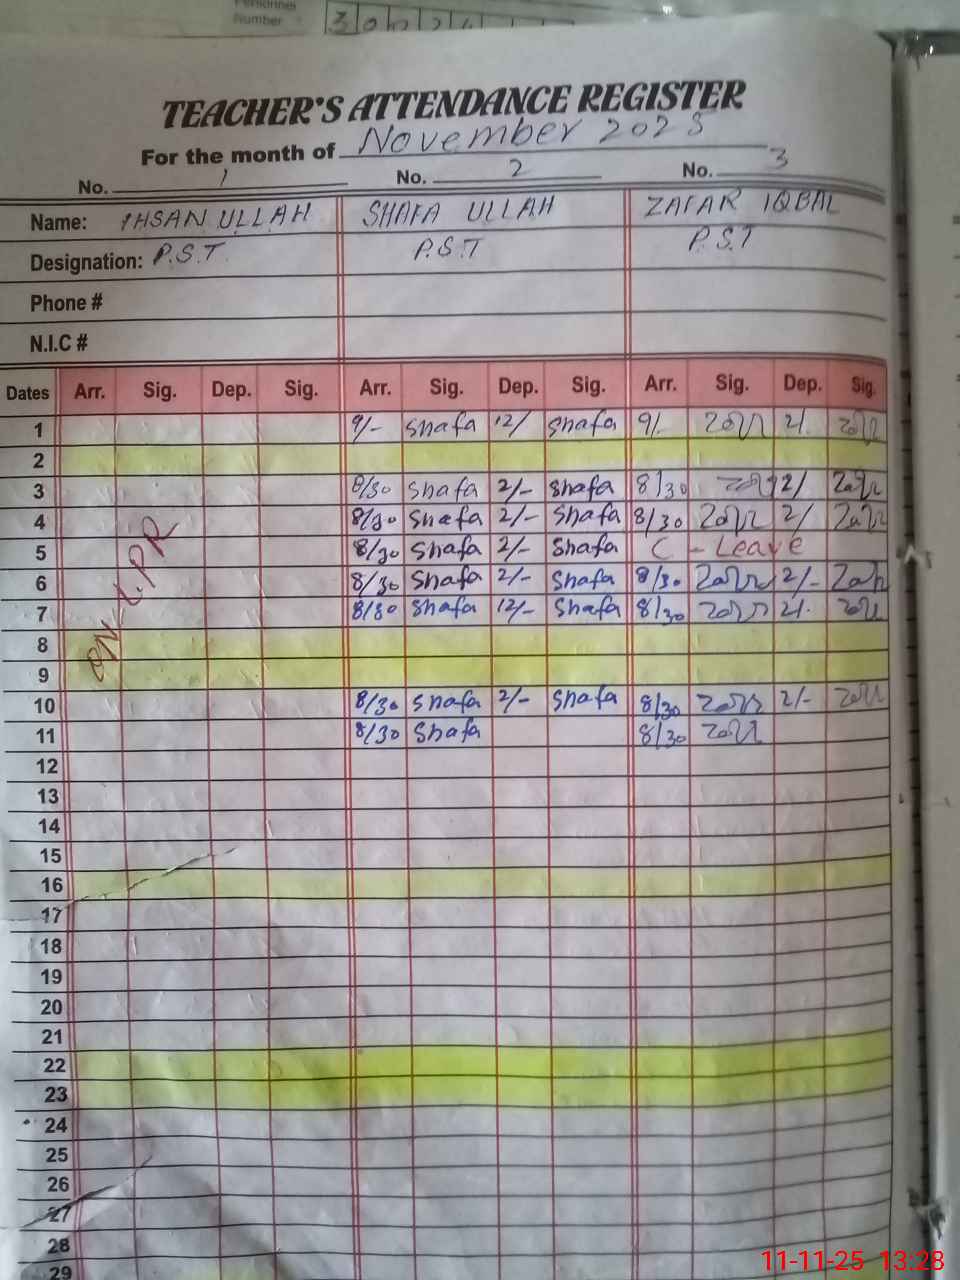 Personnel
Number 3 0 0 2 4
TEACHER'S ATTENDANCE REGISTER
For the month of November 2025
No. 1 No. 2 No. 3
Name: IHSAN ULLAH SHAFA ULLAH ZAFAR IQBAL
Designation: P.S.T P.S.T P.S.T
Phone #
N.I.C #
Dates Arr. Sig. Dep. Sig. Arr. Sig. Dep. Sig. Arr. Sig. Dep. Sig.
1 9/- Shafa 12/ Shafa 9/.
2
3 8/30 Shafa 2/- Shafa 8/30 2/
4 8/30 Shafa 2/- Shafa 8/30 2/
5 8/30 Shafa 2/- Shafa C - Leave
6 8/30 Shafa 2/- Shafa 8/30 2/-
7 8/30 Shafa 12/- Shafa 8/30
ON LPR
8
9
10 8/30 Shafa 2/- Shafa 8/30 2/-
11 8/30 Shafa 8/30
12
13
14
15
16
17
18
19
20
21
22
23
24
25
26
27
28
29
11-11-25 13:28